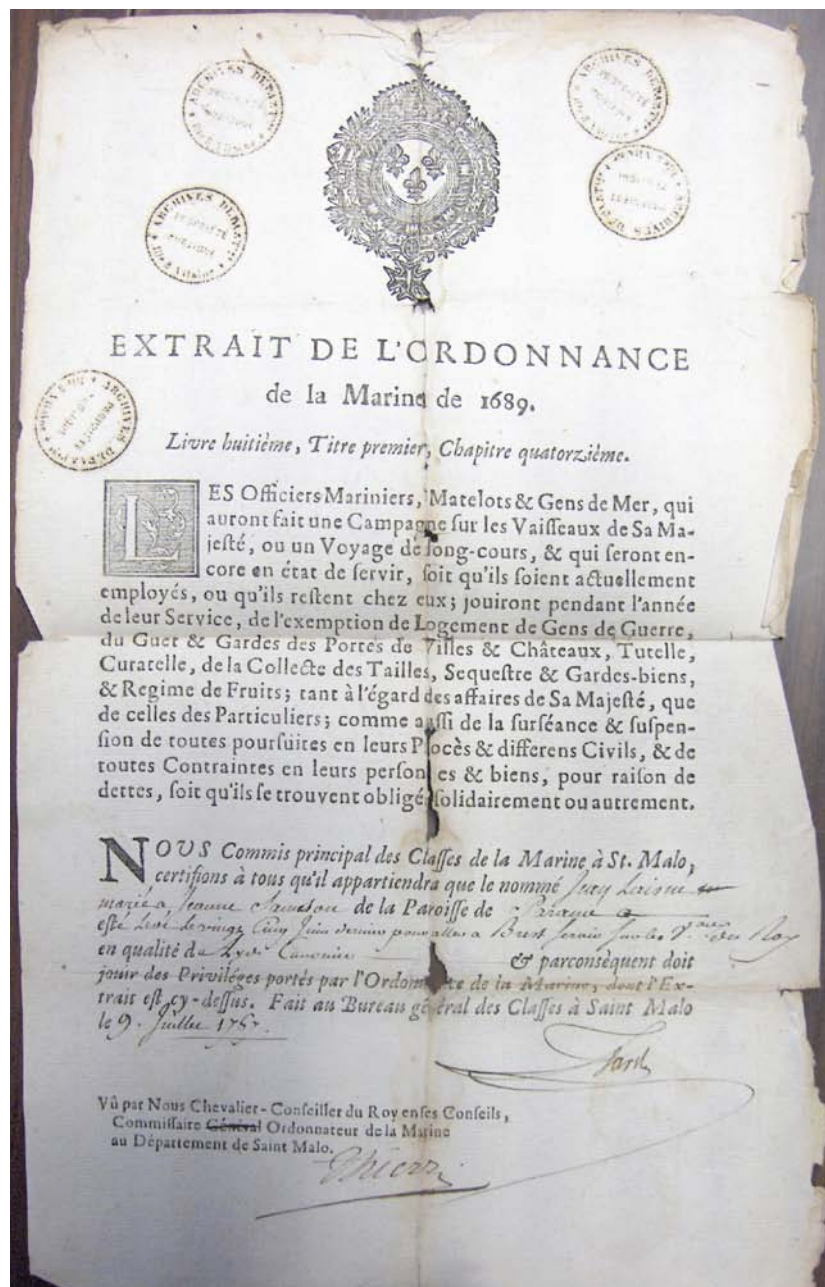 ARCHIVES DÉPARTles
PROPRIÉTÉ
PUBLIQUE
ARCHIVES DÉPARTles
PROPRIÉTÉ
PUBLIQUE
ARCHIVES DÉPARTles
PROPRIÉTÉ
PUBLIQUE
ARCHIVES DÉPARTles
Ille & Vilaine
PROPRIÉTÉ
PUBLIQUE
EXTRAIT DE L'ORDONNANCE
de la Marine de 1689.
ARCHIVES DÉPARTles
Livre huitième, Titre premier, Chapitre quatorzième.
LES Officiers Mariniers, Matelots & Gens de Mer, qui
auront fait une Campagne ſur les Vaiſſeaux de Sa Ma-
jeſté, ou un Voyage de long-cours, & qui ſeront en-
core en état de ſervir, ſoit qu'ils ſoient actuellement
employés, ou qu'ils reſtent chez eux; jouiront pendant l'année
de leur Service, de l'exemption de Logement de Gens de Guerre,
du Guet & Gardes des Portes de Villes & Châteaux, Tutelle,
Curatelle, de la Collecte des Tailles, Sequeſtre & Gardes-biens,
& Regime de Fruits; tant à l'égard des affaires de Sa Majeſté, que
de celles des Particuliers; comme auſſi de la ſurſéance & ſuſpen-
ſion de toutes pourſuites en leurs Procès & differens Civils, & de
toutes Contraintes en leurs perſon es & biens, pour raiſon de
dettes, ſoit qu'ils ſe trouvent obligé ſolidairement ou autrement.
NOUS Commis principal des Claſſes de la Marine à St. Malo,
certifions à tous qu'il appartiendra que le nommé Jean
marié a Jeanne de la Paroiſſe de Parame a
esté Levé le vingt Cinq Juin dernier pour aller a Brest servir sur les Vaux du Roy
en qualité de Canonier & parconſèquent doit
jouir des Priviléges portés par l'Ordon te de la Marine, dont l'Ex-
trait eſt cy-deſſus. Fait au Bureau général des Claſſes à Saint Malo
le 9. Juillet 1757.
Vû par Nous Chevalier-Conſeiller du Roy en ſes Conſeils,
Commiſſaire Général Ordonnateur de la Marine
au Département de Saint Malo.